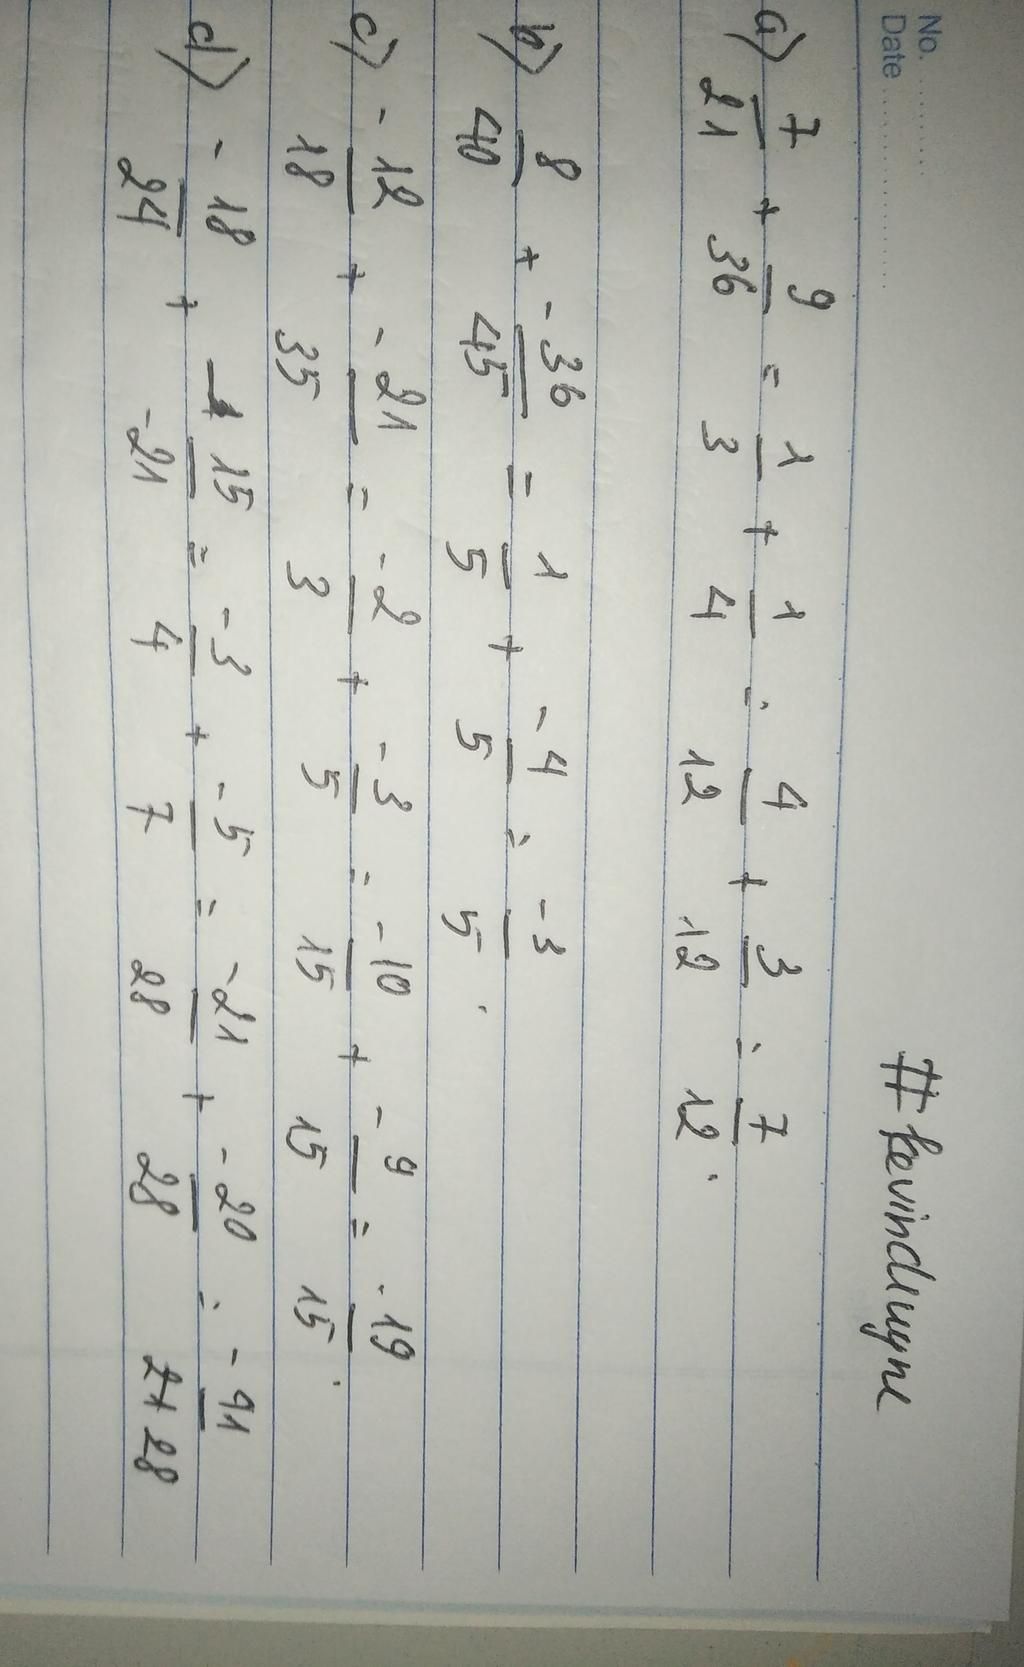 No. ........
Date ....................
#kevinduyne
a) 7/21 + 9/36 = 1/3 + 1/4 = 4/12 + 3/12 = 7/12.
b) 8/40 + -36/45 = 1/5 + -4/5 = -3/5.
c) -12/18 + -21/35 = -2/3 + -3/5 = -10/15 + -9/15 = -19/15.
d) -18/24 + 15/-21 = -3/4 + -5/7 = -21/28 + -20/28 = -41/28